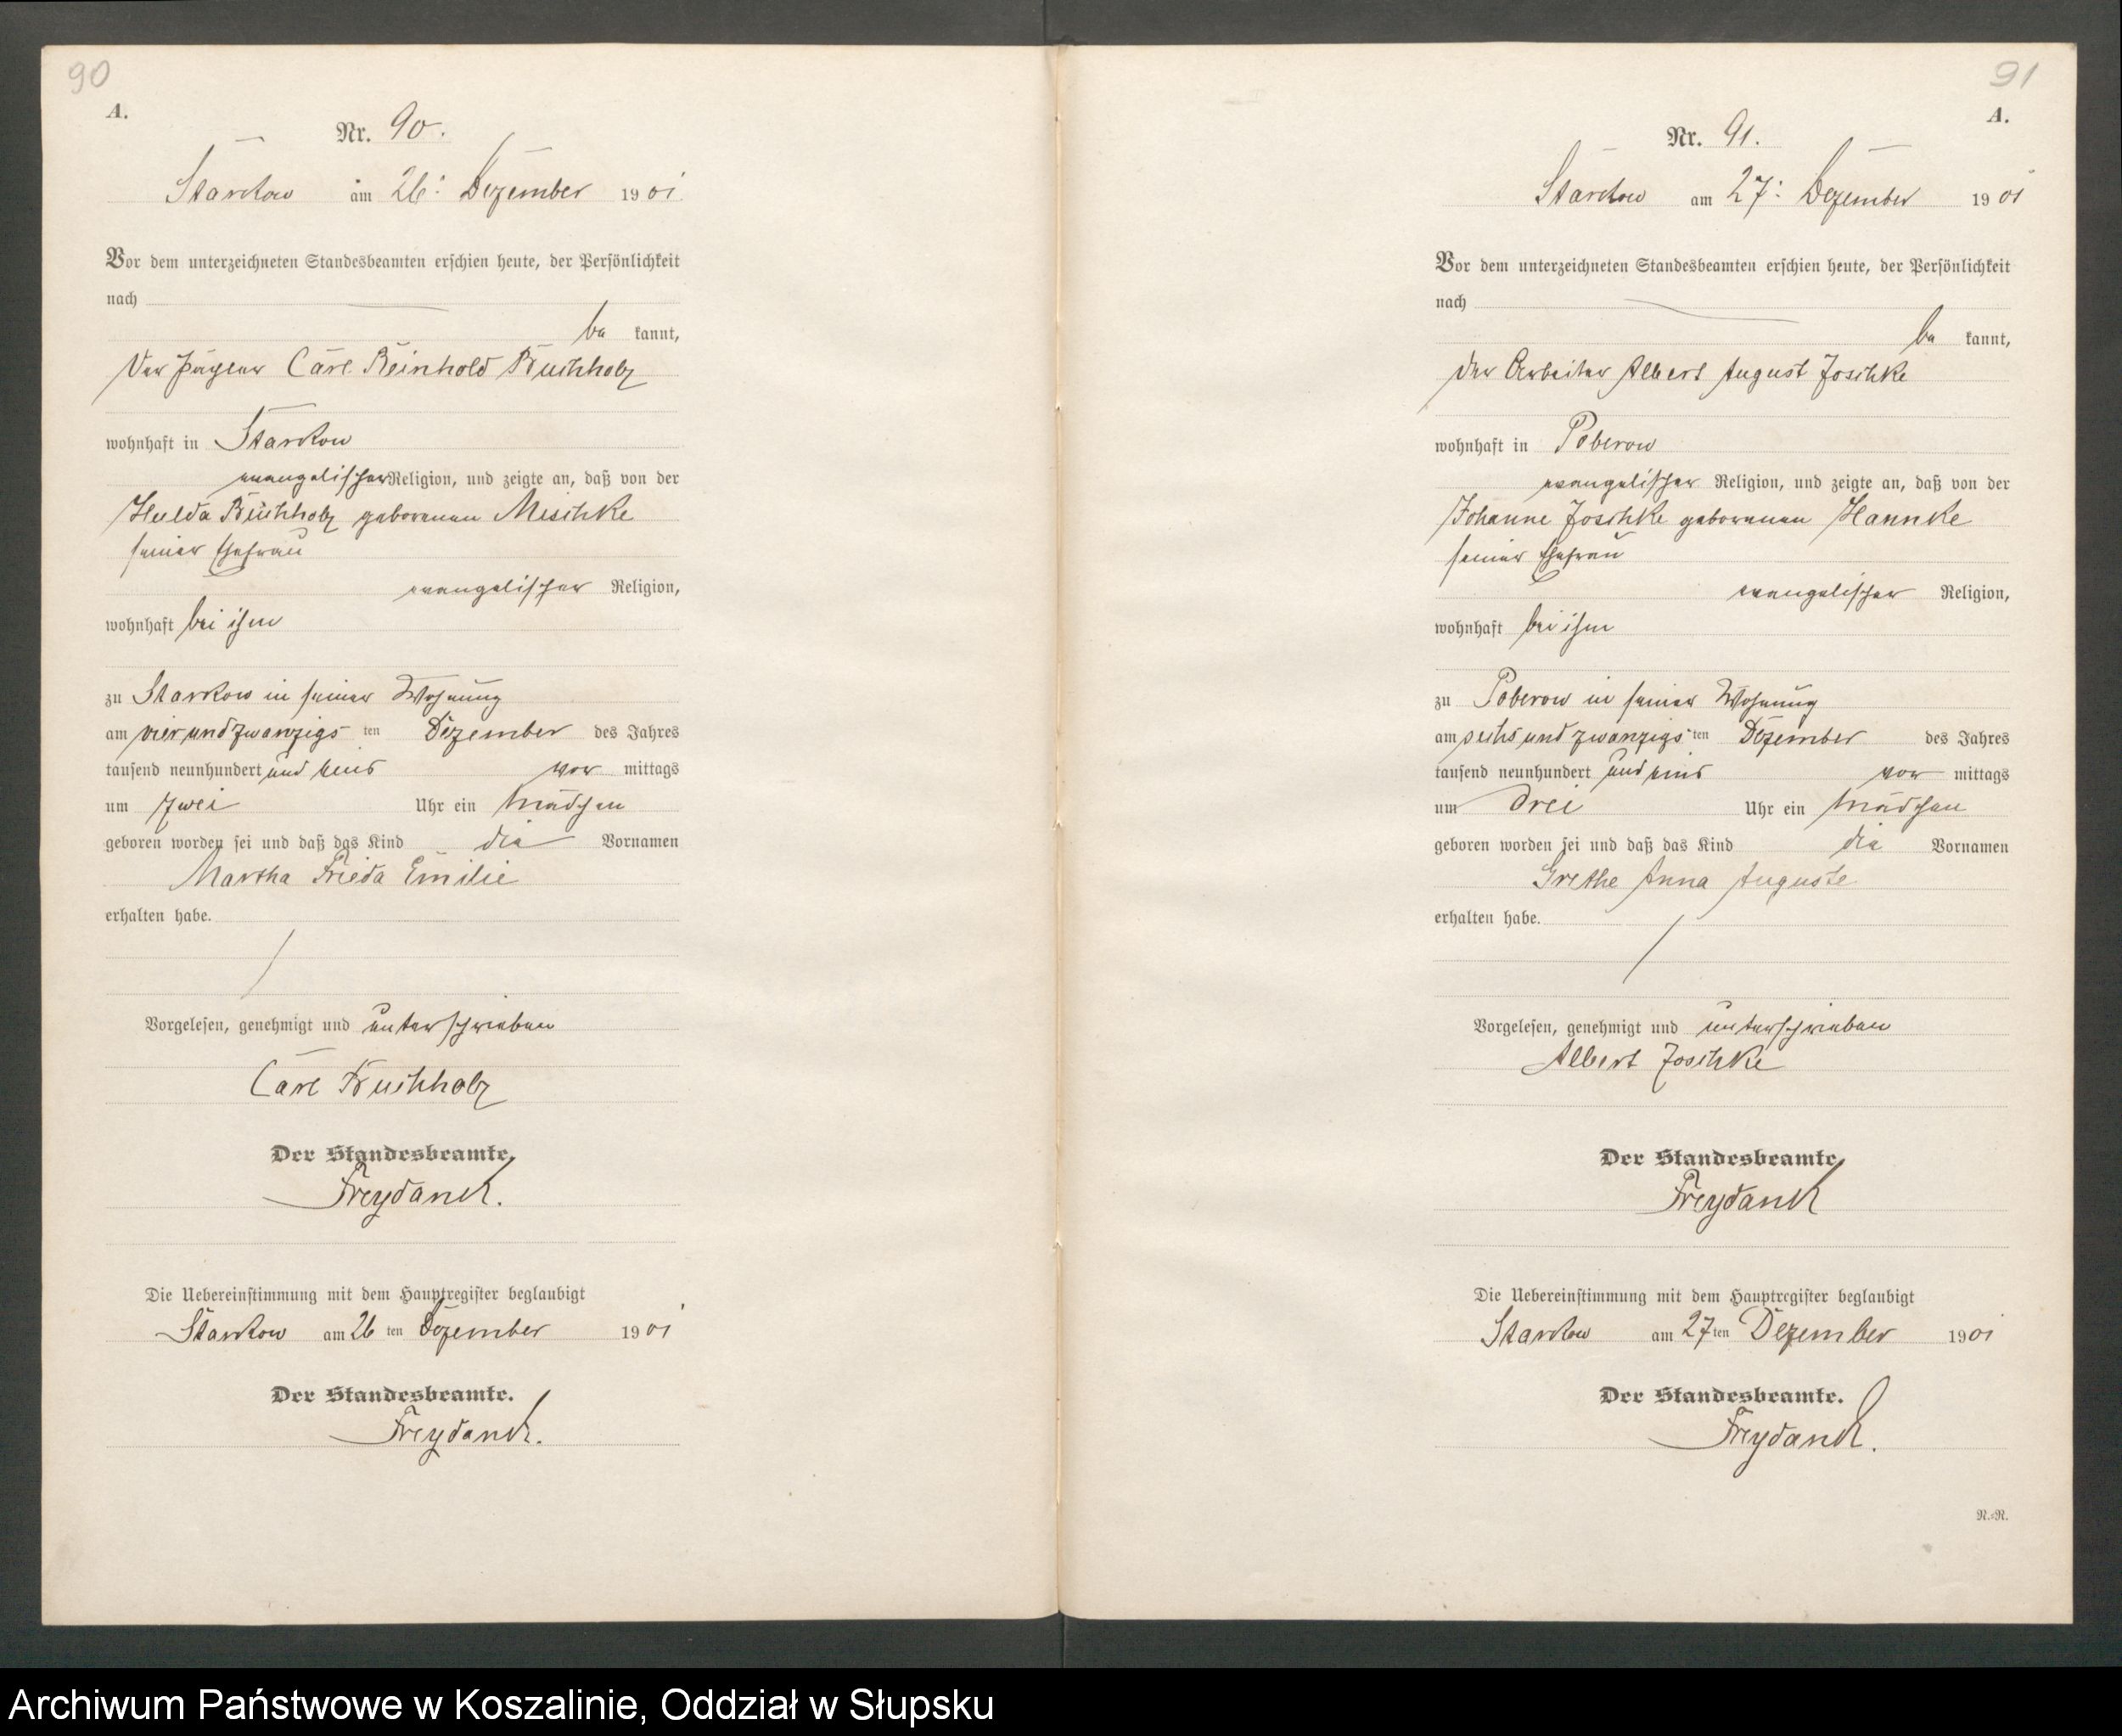 90
A.
Nr. 90.
Starkow am 26. Dezember 1901
Vor dem unterzeichneten Standesbeamten erschien heute, der Persönlichkeit
nach
be kannt,
Der Carl Reinhold Buchholz
wohnhaft in Starkow
evangelischer Religion, und zeigte an, daß von der
Hulda Buchholz geborenen Mischke
seiner Ehefrau
evangelischer Religion,
wohnhaft bei ihm
zu Starkow in seiner Wohnung
am vier und zwanzigs ten Dezember des Jahres
tausend neunhundert und eins vor mittags
um zwei Uhr ein Mädchen
geboren worden sei und daß das Kind die Vornamen
Martha Frieda Emilie
erhalten habe.
Vorgelesen, genehmigt und unterschrieben
Carl Buchholz
Der Standesbeamte.
Freydanck.
Die Uebereinstimmung mit dem Hauptregister beglaubigt
Starkow am 26 ten Dezember 1901
Der Standesbeamte.
Freydanck.
91
A.
Nr. 91.
Starkow am 27. Dezember 1901
Vor dem unterzeichneten Standesbeamten erschien heute, der Persönlichkeit
nach
be kannt,
der Arbeiter Albert August Joschke
wohnhaft in Poberow
evangelischer Religion, und zeigte an, daß von der
Johanne Joschke geborenen Hannke
seiner Ehefrau
evangelischer Religion,
wohnhaft bei ihm
zu Poberow in seiner Wohnung
am sechs und zwanzigs ten Dezember des Jahres
tausend neunhundert und eins vor mittags
um drei Uhr ein Mädchen
geboren worden sei und daß das Kind die Vornamen
Grethe Anna Auguste
erhalten habe.
Vorgelesen, genehmigt und unterschrieben
Albert Joschke
Der Standesbeamte.
Freydanck
Die Uebereinstimmung mit dem Hauptregister beglaubigt
Starkow am 27 ten Dezember 1901
Der Standesbeamte.
Freydanck.
N.=N.
Archiwum Państwowe w Koszalinie, Oddział w Słupsku